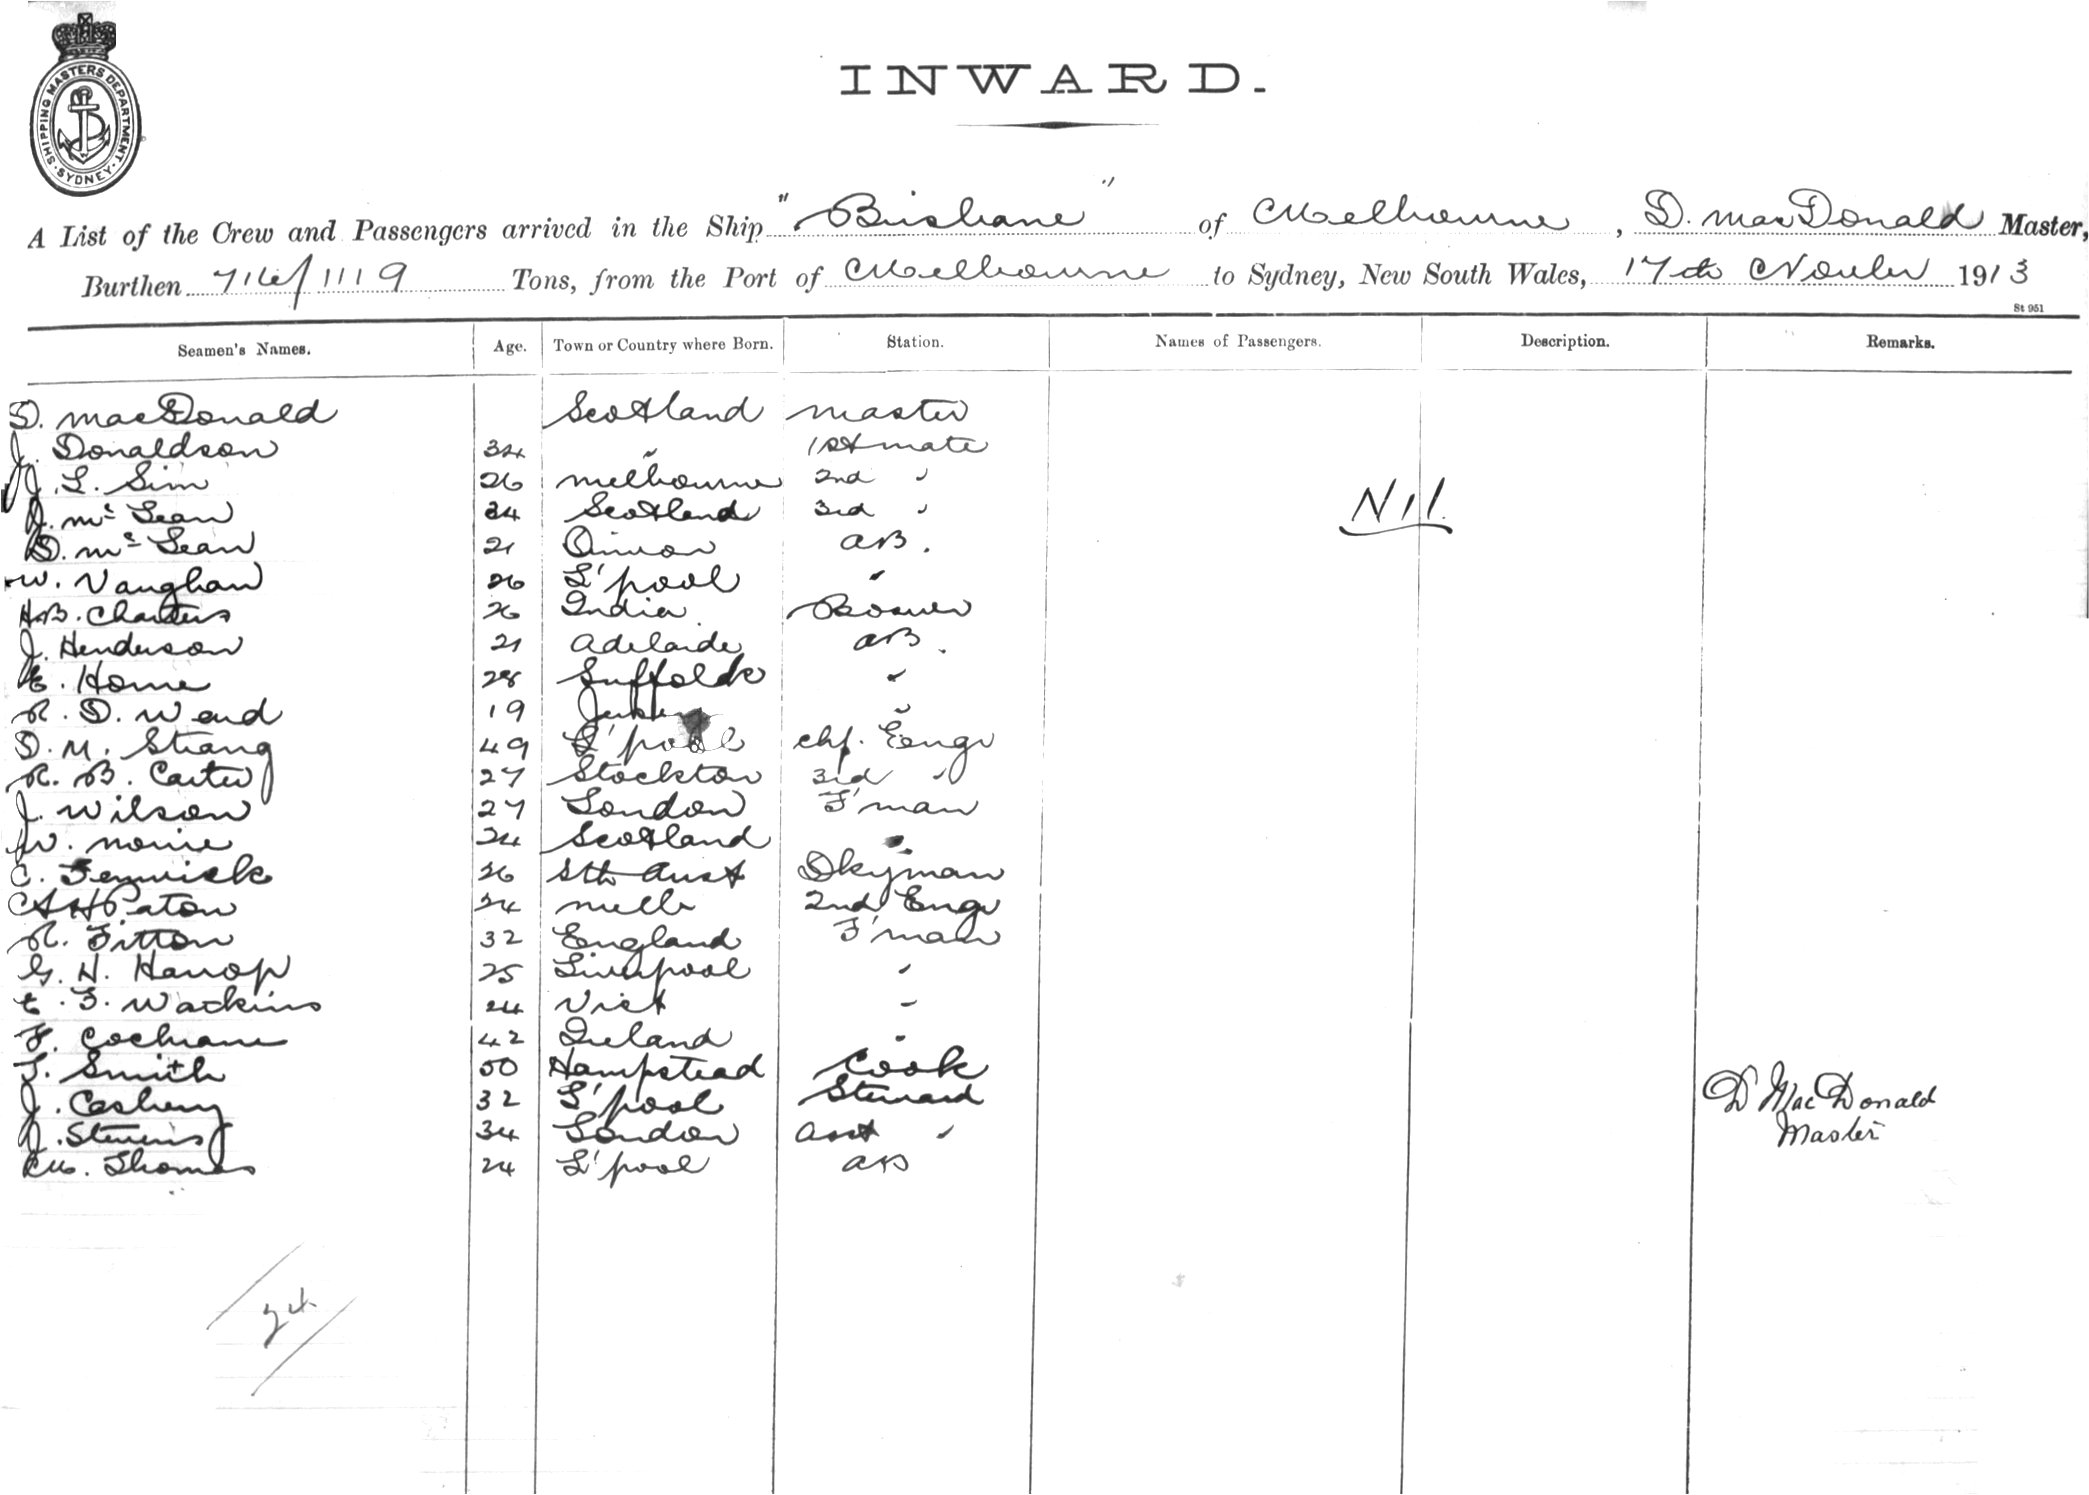 SHIPPING MASTERS DEPARTMENT. SYDNEY.
INWARD.
A List of the Crew and Passengers arrived in the Ship "Brisbane" of Melbourne, D. MacDonald Master,
Burthen 1119 Tons, from the Port of Melbourne to Sydney, New South Wales, 17th 1913
St 951
Seamen's Names. Age. Town or Country where Born. Station. Names of Passengers. Description. Remarks.
D. MacDonald Scotland Master
J. Donaldson 34 " 1st mate
J. L. Sim 26 Melbourne 2nd "
J. Mc Lean 34 Scotland 3rd "
Nil.
D. Mc Lean 21 AB.
W. Vaughan 26 L'pool "
H.B. Charters 26 India
J. Henderson 21 Adelaide AB.
E. Horne 28 Suffolk "
R. D. Wend 19 "
D. M. Strang 49 L'pool chf. Engr
R. B. Carter 27 Stockton 3rd "
J. Wilson 27 London F'man
W. Norrie 24 Scotland "
C. Fenwick 26 Sth Aust Dkyman
A H Paton 24 Melb 2nd Engr
R. Fitton 32 England F'man
G. H. Harrop 25 Liverpool "
E. F. Watkins 24 Vict "
F. Cochrane 42 Ireland "
T. Smith 50 Hampstead Cook
J. Cashery 32 L'pool Steward
J. Stevens 34 London Asst "
D MacDonald
Master
M. Thomas 24 L'pool AB
24